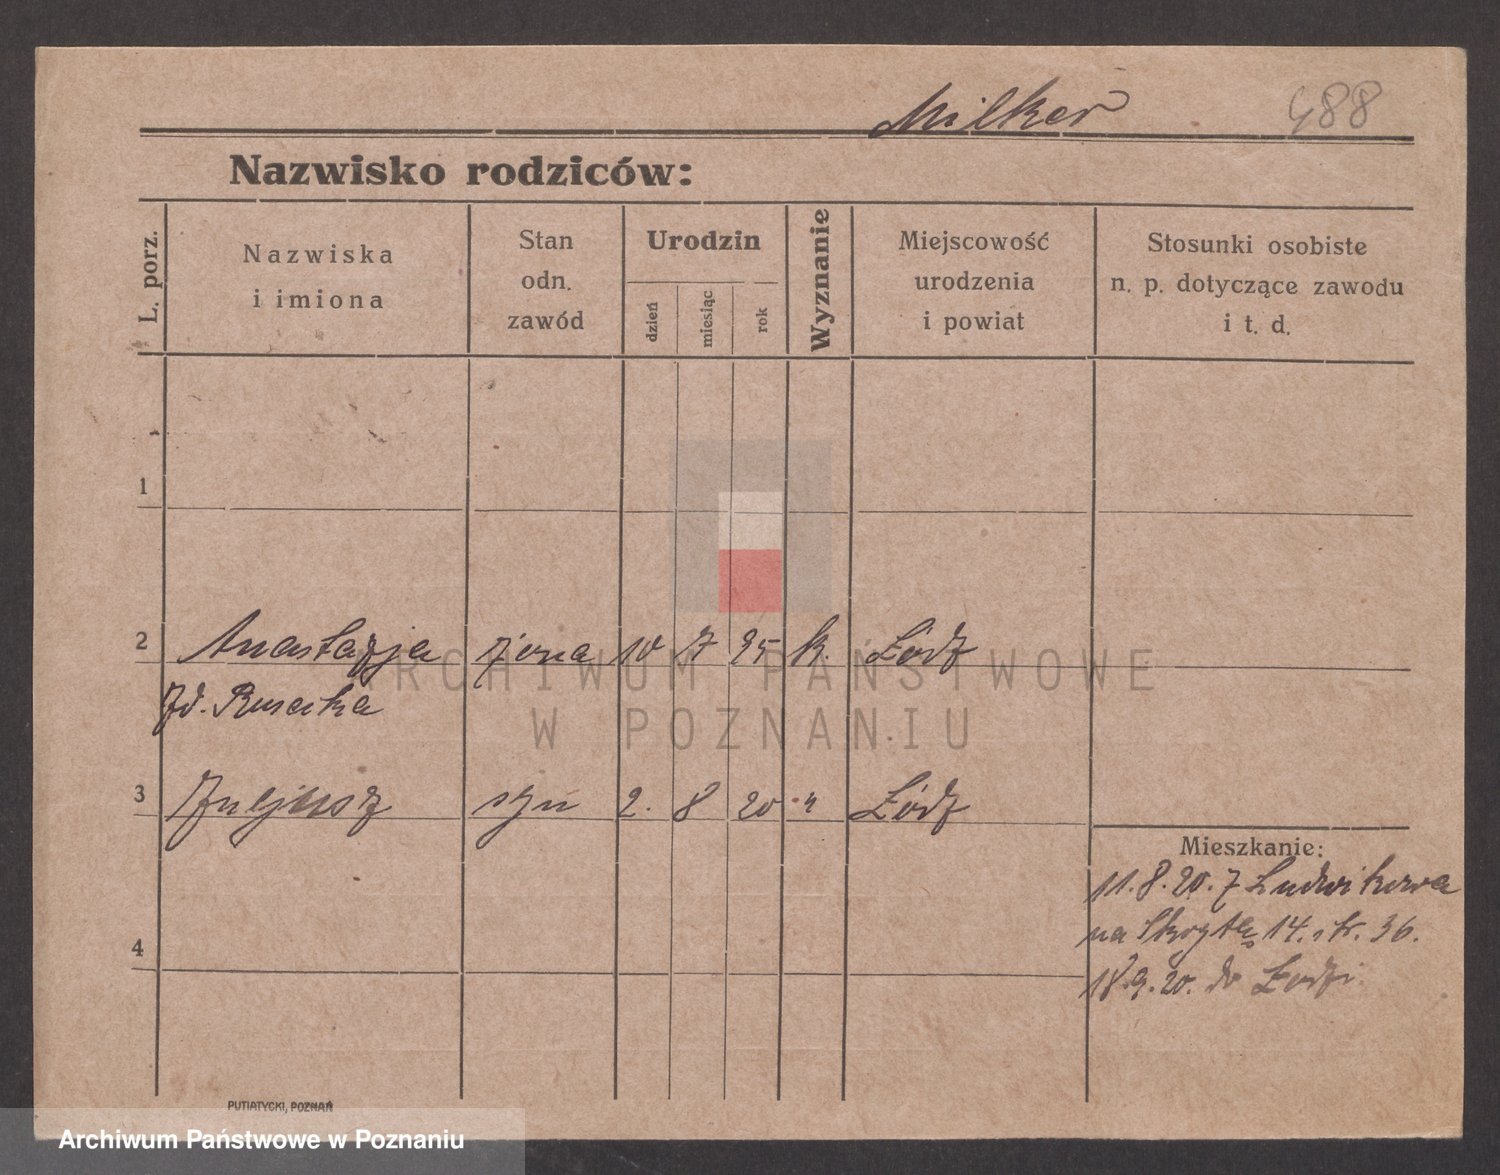 Milker 488
Nazwisko rodziców:
L. porz.
Nazwiska
i imiona
Stan
odn.
zawód
Urodzin
dzień
miesiąc
rok
Wyznanie
Miejscowość
urodzenia
i powiat
Stosunki osobiste
n. p. dotyczące zawodu
i t. d.
1
2 Anastazja żona 10 7 95 k. Łódź
zd. Rusecka
3 Juljusz syn 2. 8 20 " Łódź
Mieszkanie:
11.8.20. z Ludwikowa
na 14. 36.
4
18.9.20. do Łodzi.
ARCHIWUM PAŃSTWOWE
W POZNANIU
PUTIATYCKI, POZNAŃ
Archiwum Państwowe w Poznaniu